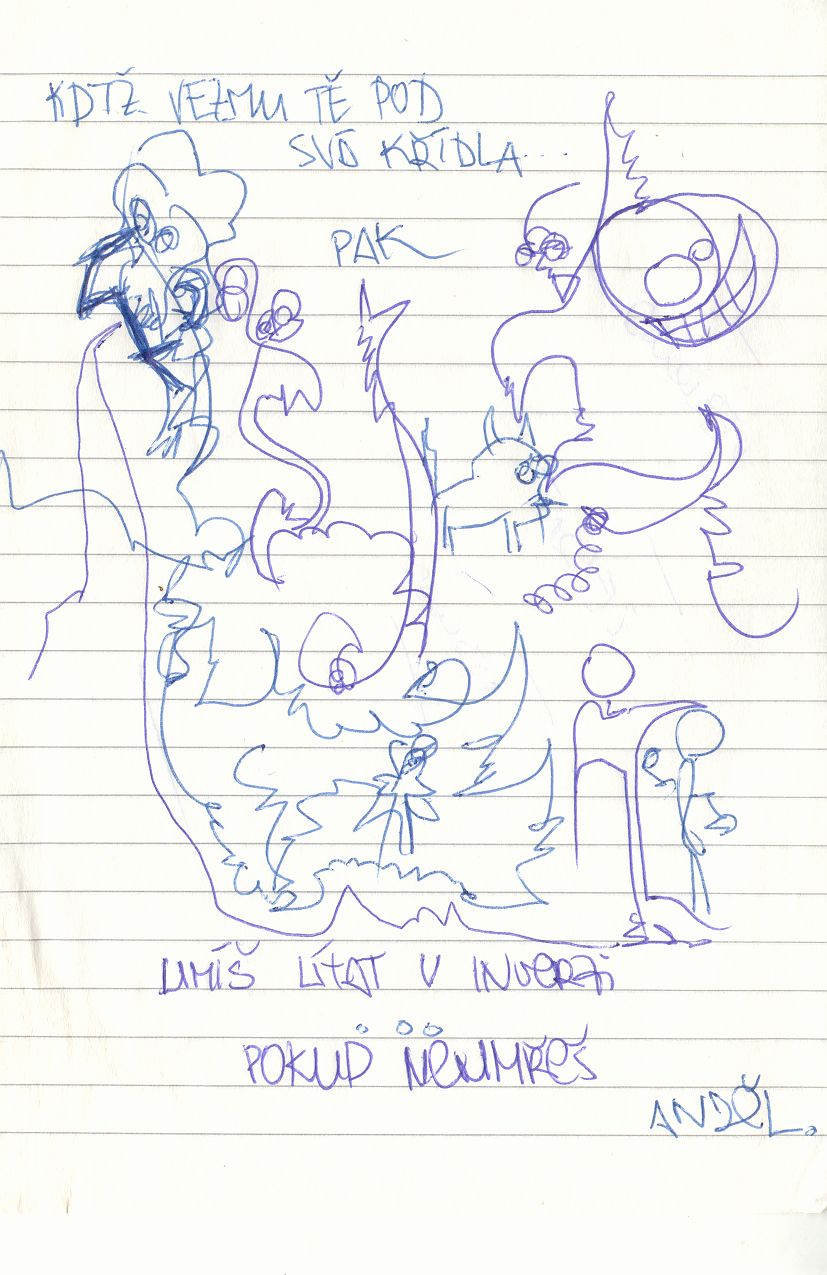 KDTŽ VEZMU TĚ POD
SVÁ KŘÍDLA...
PAK
UMÍŠ LÍTAT V INVERZI
POKUD NEUMŘEŠ
ANDĚL.